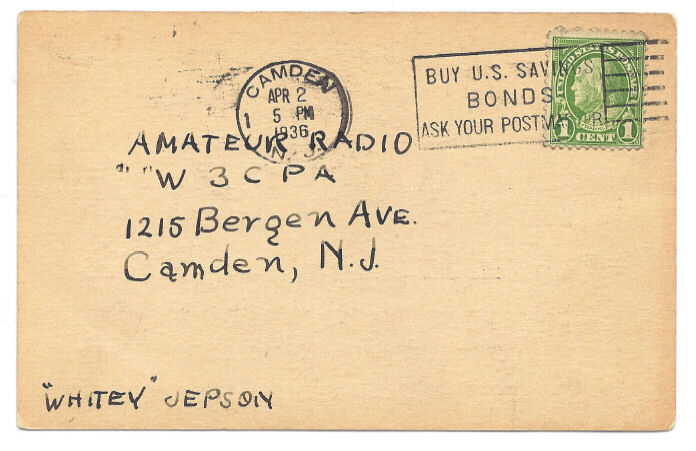 CAMDEN
APR 2
5 PM
1936
N. J.
1
BUY U.S. SAVINGS
BONDS
ASK YOUR POSTMASTER
UNITED STATES POSTAGE
1 CENT 1
AMATEUR RADIO
" "W 3 C P A
1215 Bergen AVE.
Camden, N.J.
"WHITEY" JEPSON